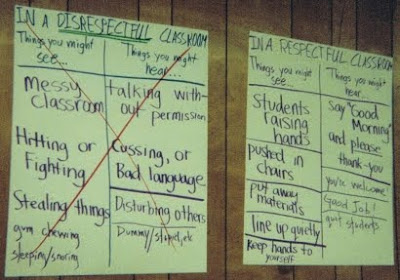 IN A DISRESPECTFUL CLASSROOM
Things you might see...
Messy classroom
Hitting or Fighting
Stealing things
gum chewing
sleeping/snoring
Things you might hear...
talking with-
out permission
Cussing, or
Bad language
Disturbing others
Dummy/stupid,etc
IN A RESPECTFUL CLASSROOM
Things you might see...
Students
raising
hands
pushed in
chairs
put away
materials
line up quietly
keep hands to
yourself
Things you might hear...
say "Good
Morning"
and please
thank-you
you're welcome
Good Job!
quit students